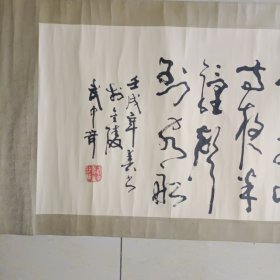 寺夜半
鐘聲
到客船
壬戌年春書
於金陵
武中奇